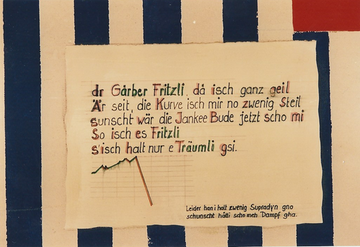 dr Gärber Fritzli, dä isch ganz geil
Är seit, die Kurve isch mir no zwenig Steil
sunscht wär die Jankee Bude jetzt scho mi
So isch es Fritzli
s'isch halt nur e Träumli gsi.
Leider han i halt zwenig Supradyn gno
schunscht hätti scho meh Dampf gha.